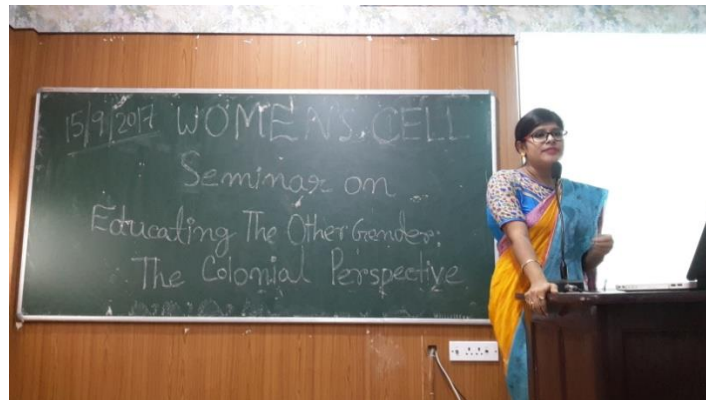 15/9/2017 WOMEN'S CELL
Seminar on
Educating The Other Gender:
The Colonial Perspective